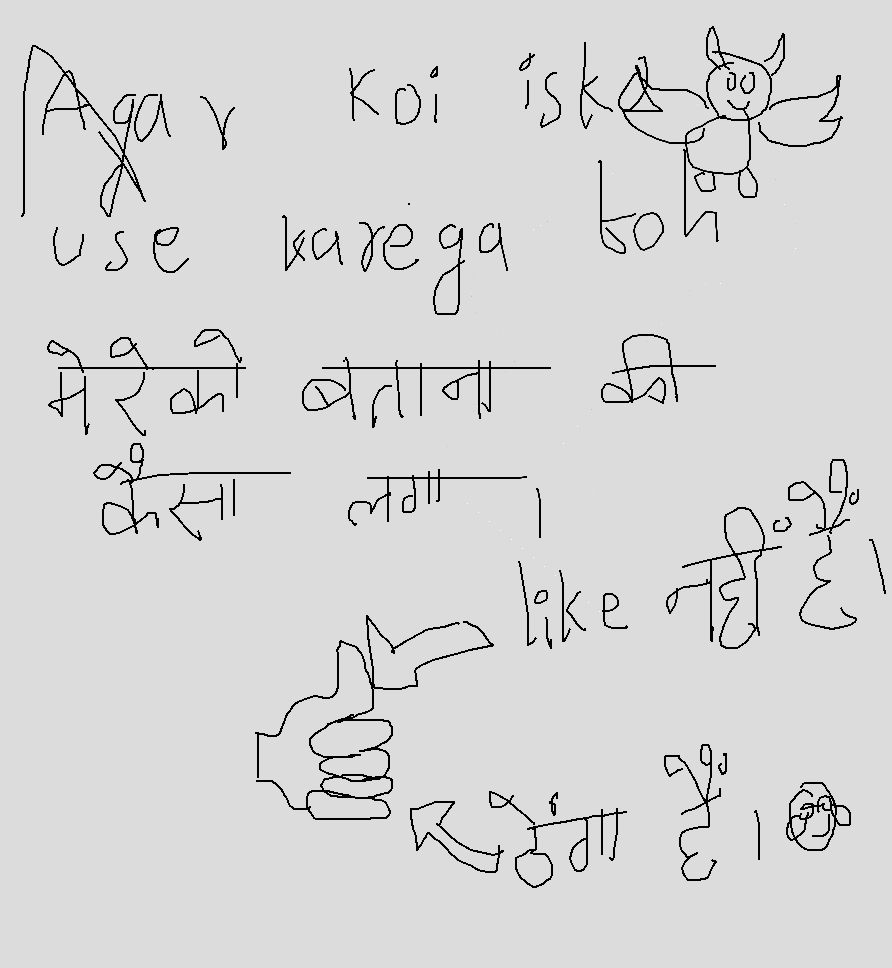 Agar koi iska
use karega toh
मेरेको बताना की
कैसा लगा ।
like नहीं हैं ।
ठेंगा हैं ।